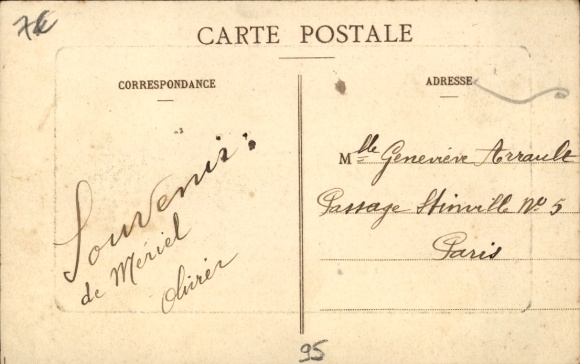 7€
CARTE POSTALE
CORRESPONDANCE
ADRESSE
Souvenir
de Mériel
Mlle Geneviève Arrault
Passage Stinville No 5
Paris
95